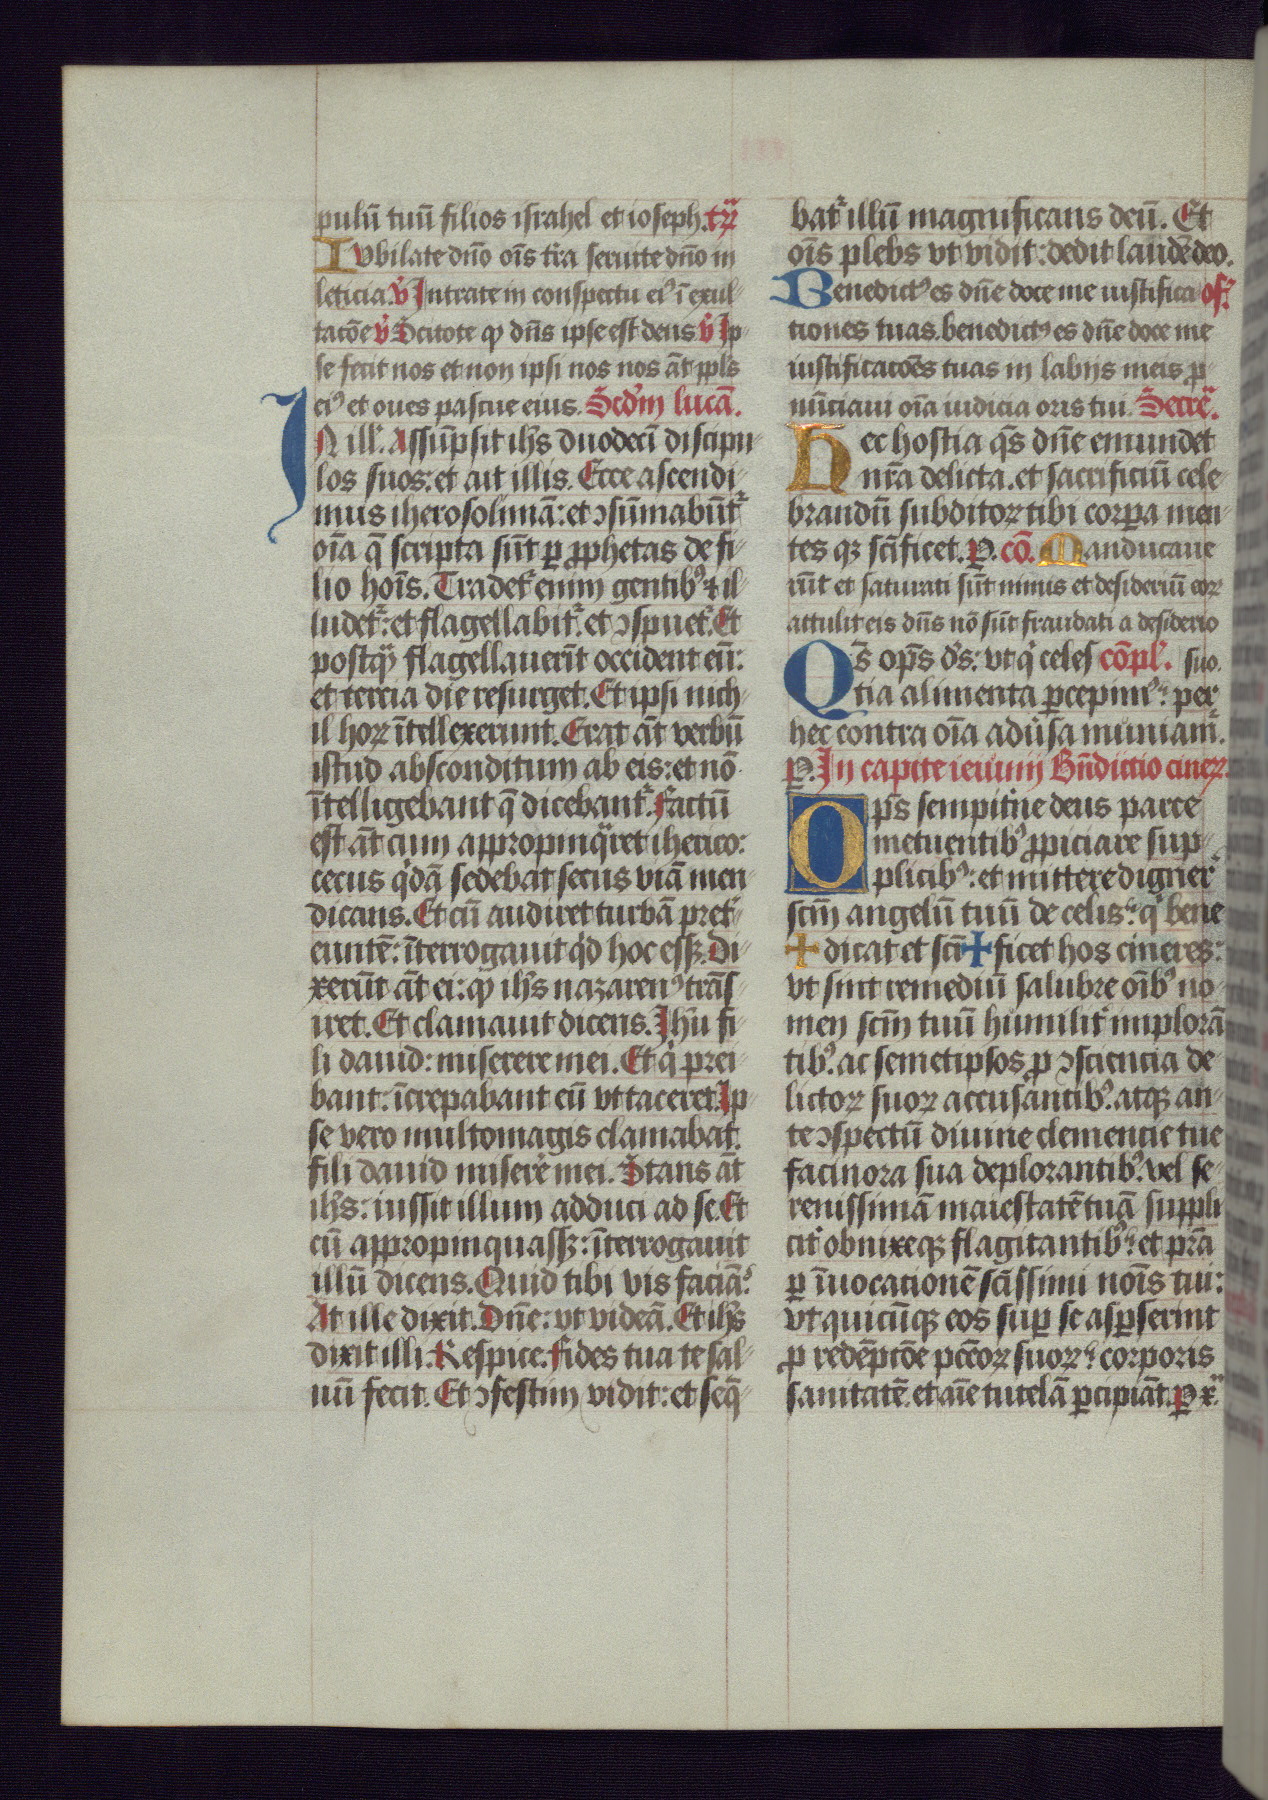 pulū tuū filios israhel et ioseph. tr̄
Iubilate dn̄o oīs tr̄a seruite dn̄o in
leticia. v̄ Intrate in conspectu eiꝰ ī exul-
tacōe v̄ Scitote qꝫ dn̄s ipse est deus v̄ Ip-
se fecit nos et non ipsi nos nos āt ppl̄s
eiꝰ et oues pascue eius. Scd̄m lucā.
In ill̓. Assūpsit ihs̄ duodecī discipu-
los suos: et ait illis. Ecce ascendi-
mus iherosolimā: et ꝯsūmabūt᷑
oīa q̄ scripta sūt ꝑ ꝓphetas de fi-
lio hoīs. Tradet᷑ enim gentibꝰ ⁊ il-
ludet᷑: et flagellabit᷑. et ꝯspuet᷑. Et
postq̄ꝫ flagellauerīt occident eū:
et tercia die resurget. Et ipsi nich-
il horꝝ ītellexerunt. Erat āt verbū
istud absconditum ab eis: et nō
ītelligebant q̄ dicebant᷑. Factū
est āt cum appropinq̄ret iherico:
cecus q̓dā sedebat secus viā men-
dicans. Et cū audiret turbā pret̓-
euntē: īterrogauit q̓d hoc essꝫ. Di-
xerūt āt ei: qꝫ ihs̄ nazarenꝰ trās-
iret. Et clamauit dicens. Ihu̅ fi-
li dauid: miserere mei. Et q̓ prei-
bant: īcrepabant eū vt taceret. Ip-
se vero multomagis clamabat.
fili dauid miser̄e mei. Stans āt
ihs̄: iussit illum adduci ad se. Et
cū appropinquassꝫ: īterrogauit
illū dicens. Quid tibi vis faciā?
At ille dixit. Dn̄e: vt videā. Et ihs̄
dixit illi. Respice. fides tua te sal-
uū fecit. Et ꝯfestim vidit: et seq̄-
bat᷑ illū magnificans deū. Et
oīs plebs vt vidit: dedit laudē deo.
Benedictꝰ es dn̄e doce me iustifica of̄.
tiones tuas. benedictꝰ es dn̄e doce me
iustificacōes tuas in labijs meis ꝓ-
nūciaui oīa iudicia oris tui. Secrē.
Hec hostia q̄s dn̄e emundet
nr̄a delicta. et sacrificiū cele-
brandū subditorꝝ tibi corꝑa men-
tes qꝫ sc̄ificet. P. cō. Manducaue
rūt et saturati sūt nimis et desideriū eorꝝ
attulit eis dn̄s nō sūt fraudati a desiderio
Q̄s op̄s d̄s: vt q̓ celes cōpl̓. suo.
tia alimenta ꝑcepimꝰ: per
hec contra oīa adūsa muniam᷑.
P. In capite ieiunii Bn̄dictio cinerꝝ.
Op̄s sempit̓ne deus parce
metuentibꝰ ꝓpiciare sup-
plicibꝰ: et mittere digner᷑
sc̄m angelū tuū de celis: q̓ bene
+ dicat et sc̄i + ficet hos cineres:
vt sint remediū salubre oībꝰ no-
men sc̄m tuū humilit̓ implorā
tibꝰ. ac semetipsos ꝓ ꝯsciencia de-
lictorꝝ suorꝝ accusantibꝰ. atqꝫ an-
te ꝯspectū diuine clemencie tue
facinora sua deplorantibꝰ. vel se-
renissimā maiestatē tuā suppli
cit̓ obnixeqꝫ flagitantibꝰ: et pr̄a
ꝑ īuocationē sc̄issimi noīs tui:
vt quicūqꝫ eos suꝑ se asꝑserint
ꝓ redēptōe pccōrꝝ suorꝝ: corporis
sanitatē. et aīe tutelā ꝑcipiāt. P x̄.